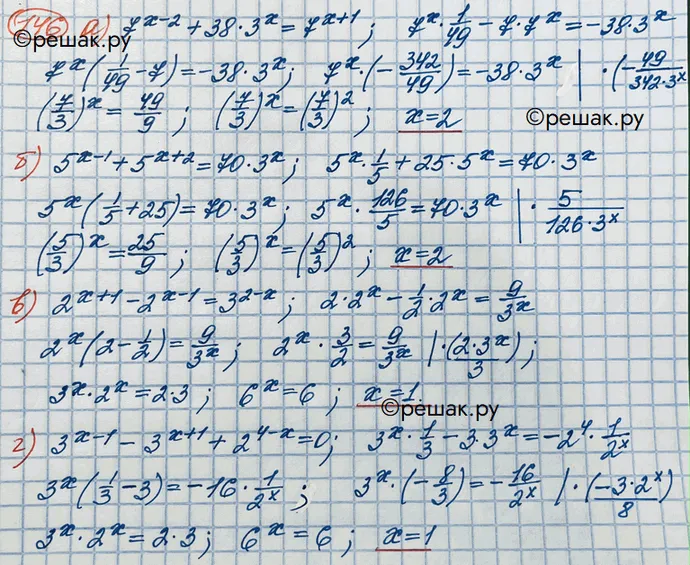 146 а) 7^(x-2) + 38·3^x = 7^(x+1); 7^x·1/49 - 7·7^x = -38·3^x
©решак.ру
7^x(1/49 - 7) = -38·3^x; 7^x·(-342/49) = -38·3^x | ·(-49/(342·3^x)
(7/3)^x = 49/9; (7/3)^x = (7/3)^2; x=2
©решак.ру
б) 5^(x-1) + 5^(x+2) = 70·3^x; 5^x·1/5 + 25·5^x = 70·3^x
5^x(1/5 + 25) = 70·3^x; 5^x·126/5 = 70·3^x | ·5/(126·3^x)
(5/3)^x = 25/9; (5/3)^x = (5/3)^2; x=2
в) 2^(x+1) - 2^(x-1) = 3^(2-x); 2·2^x - 1/2·2^x = 9/3^x
2^x(2 - 1/2) = 9/3^x; 2^x·3/2 = 9/3^x | ·(2·3^x)/3;
3^x·2^x = 2·3; 6^x = 6; x=1.
©решак.ру
г) 3^(x-1) - 3^(x+1) + 2^(4-x) = 0; 3^x·1/3 - 3·3^x = -2^4·1/2^x
3^x(1/3 - 3) = -16·1/2^x; 3^x·(-8/3) = -16/2^x | ·(-3·2^x)/8
3^x·2^x = 2·3; 6^x = 6; x=1